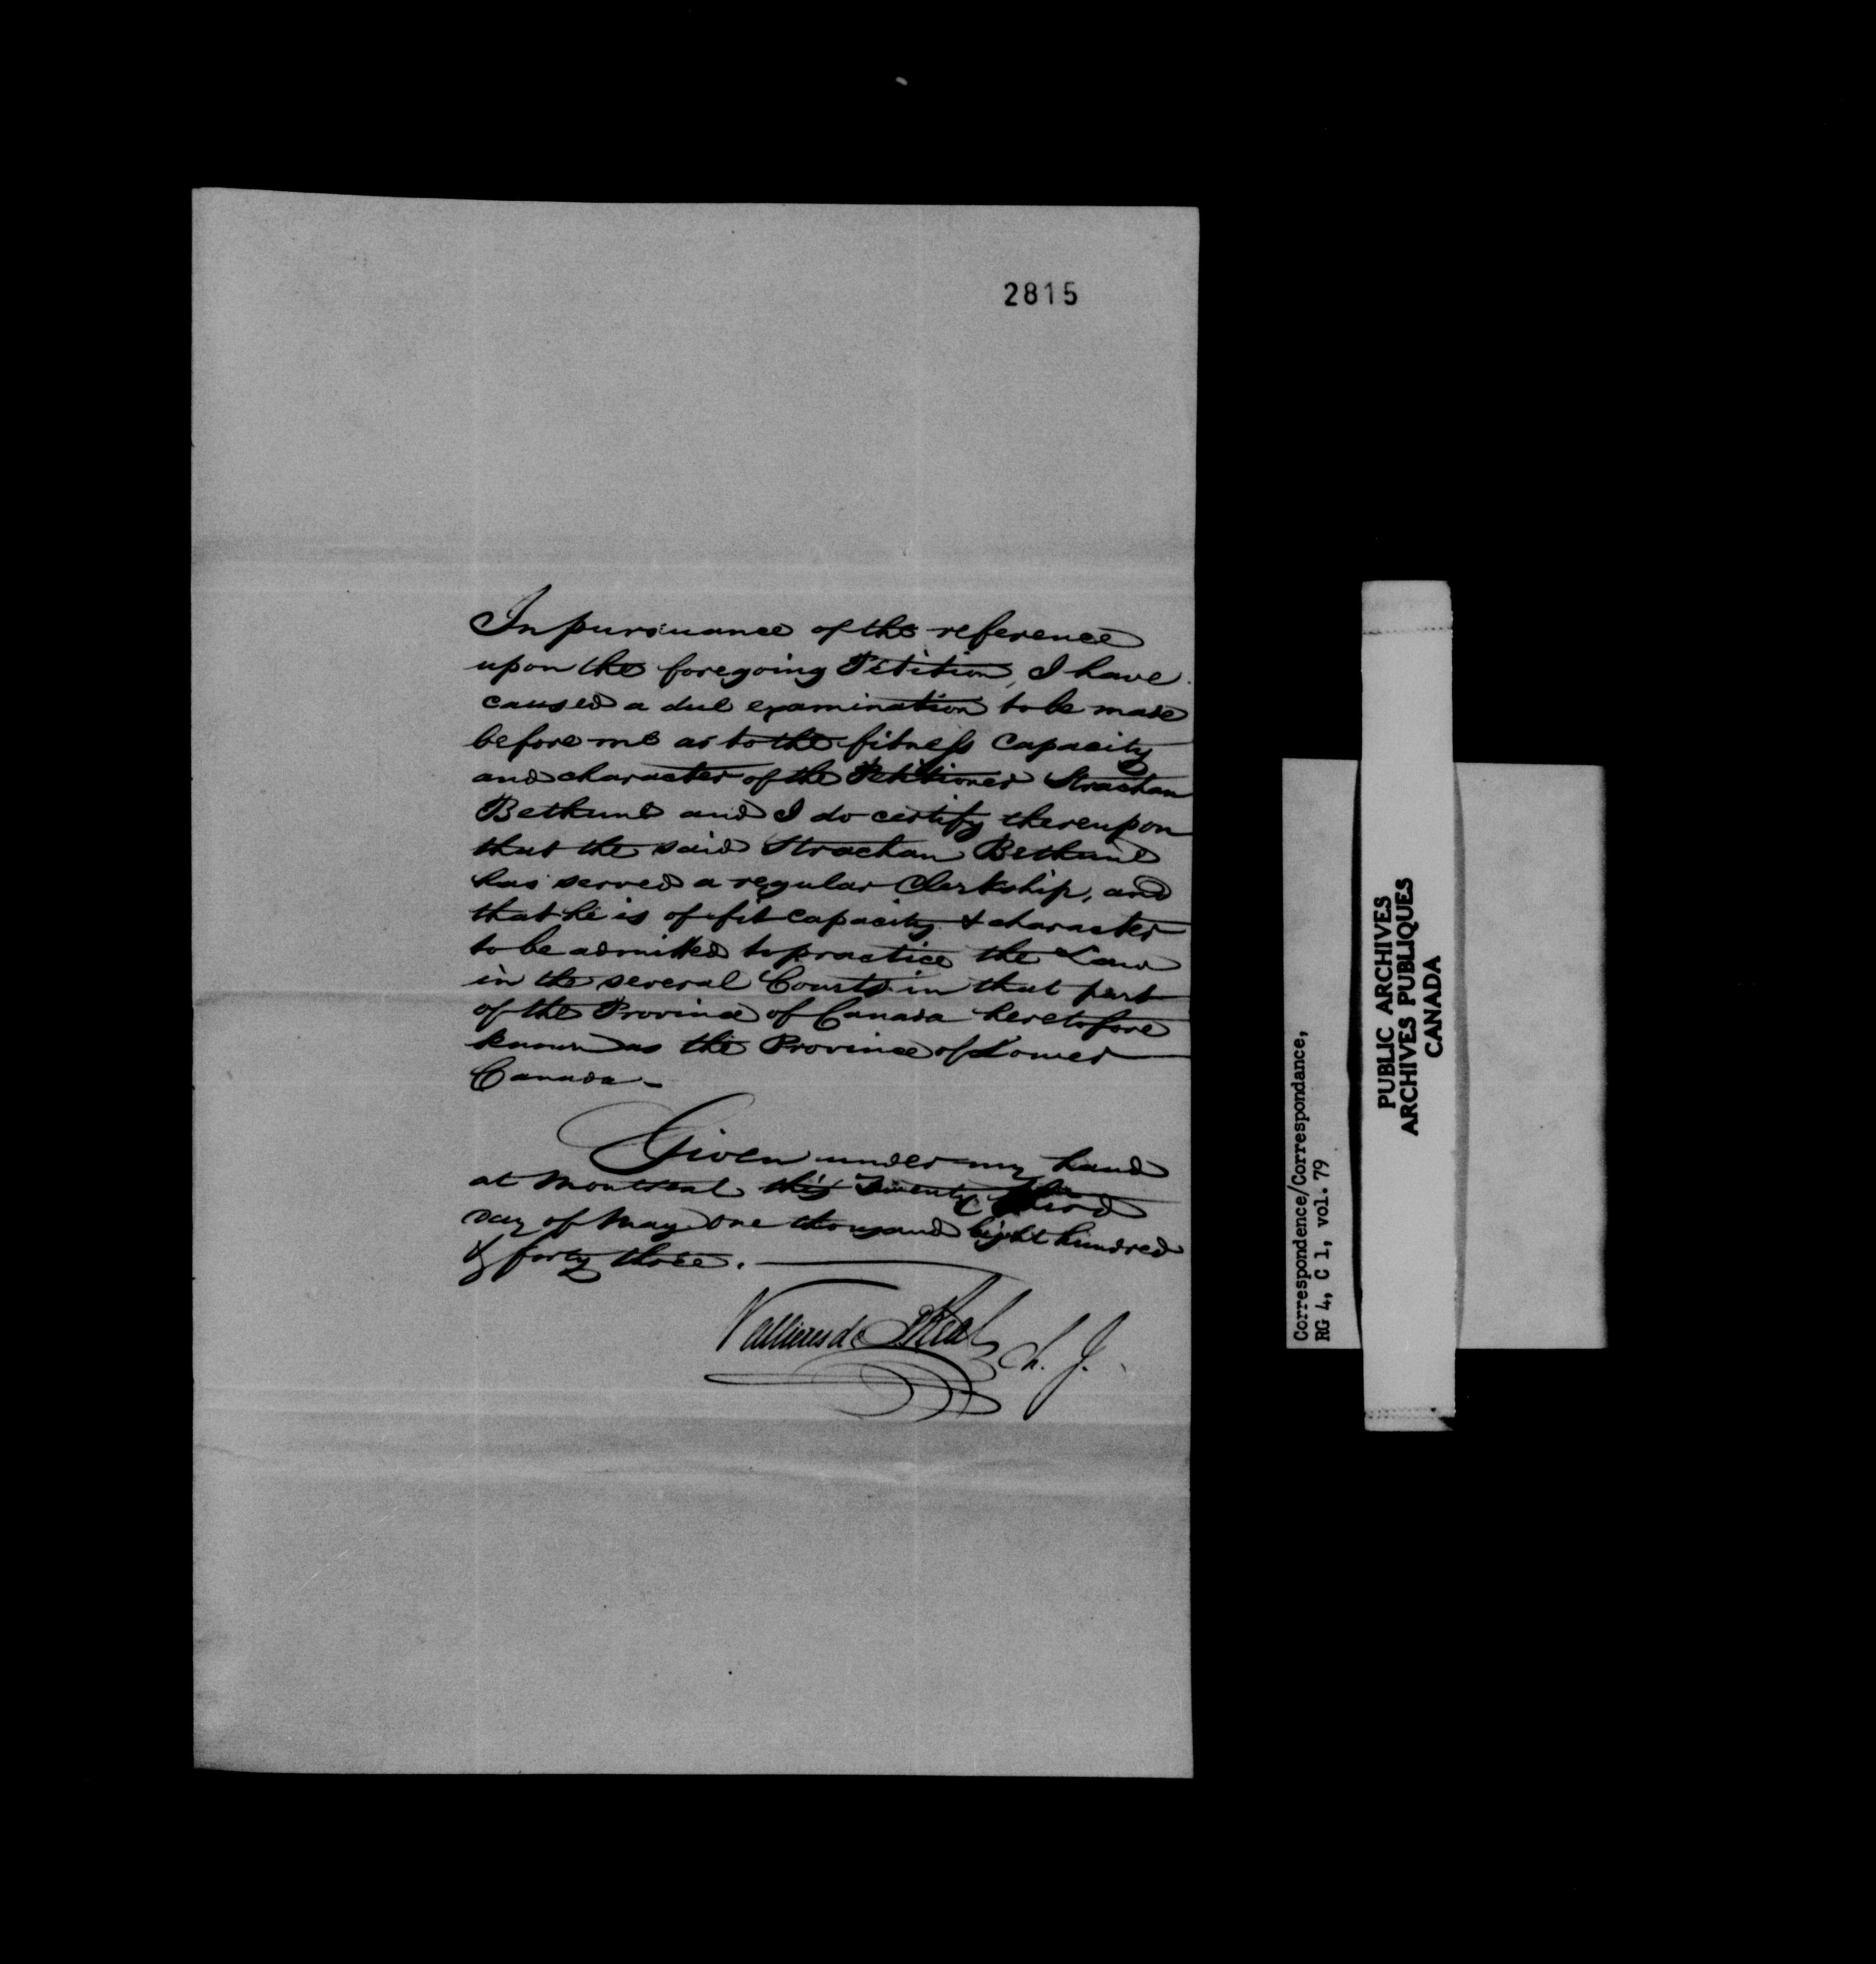 2815
In pursuance of the reference
upon the foregoing Petition, I have
caused a due examination to be made
before me as to the fitness capacity
and character of the Petitioner Strachan
Bethune and I do certify thereupon
that the said Strachan Bethune
has served a regular Clerkship, and
that he is of fit capacity & character
to be admitted to practice the Law
in the several Courts in that part
of the Province of Canada heretofore
known as the Province of Lower
Canada –
Given under my hand
at Montreal this Twenty third
day of May one thousand eight hundred
& forty three.
Vallieres de St Real Ch. J.
Correspondence/Correspondance,
RG 4, C 1, vol. 79
PUBLIC ARCHIVES
ARCHIVES PUBLIQUES
CANADA